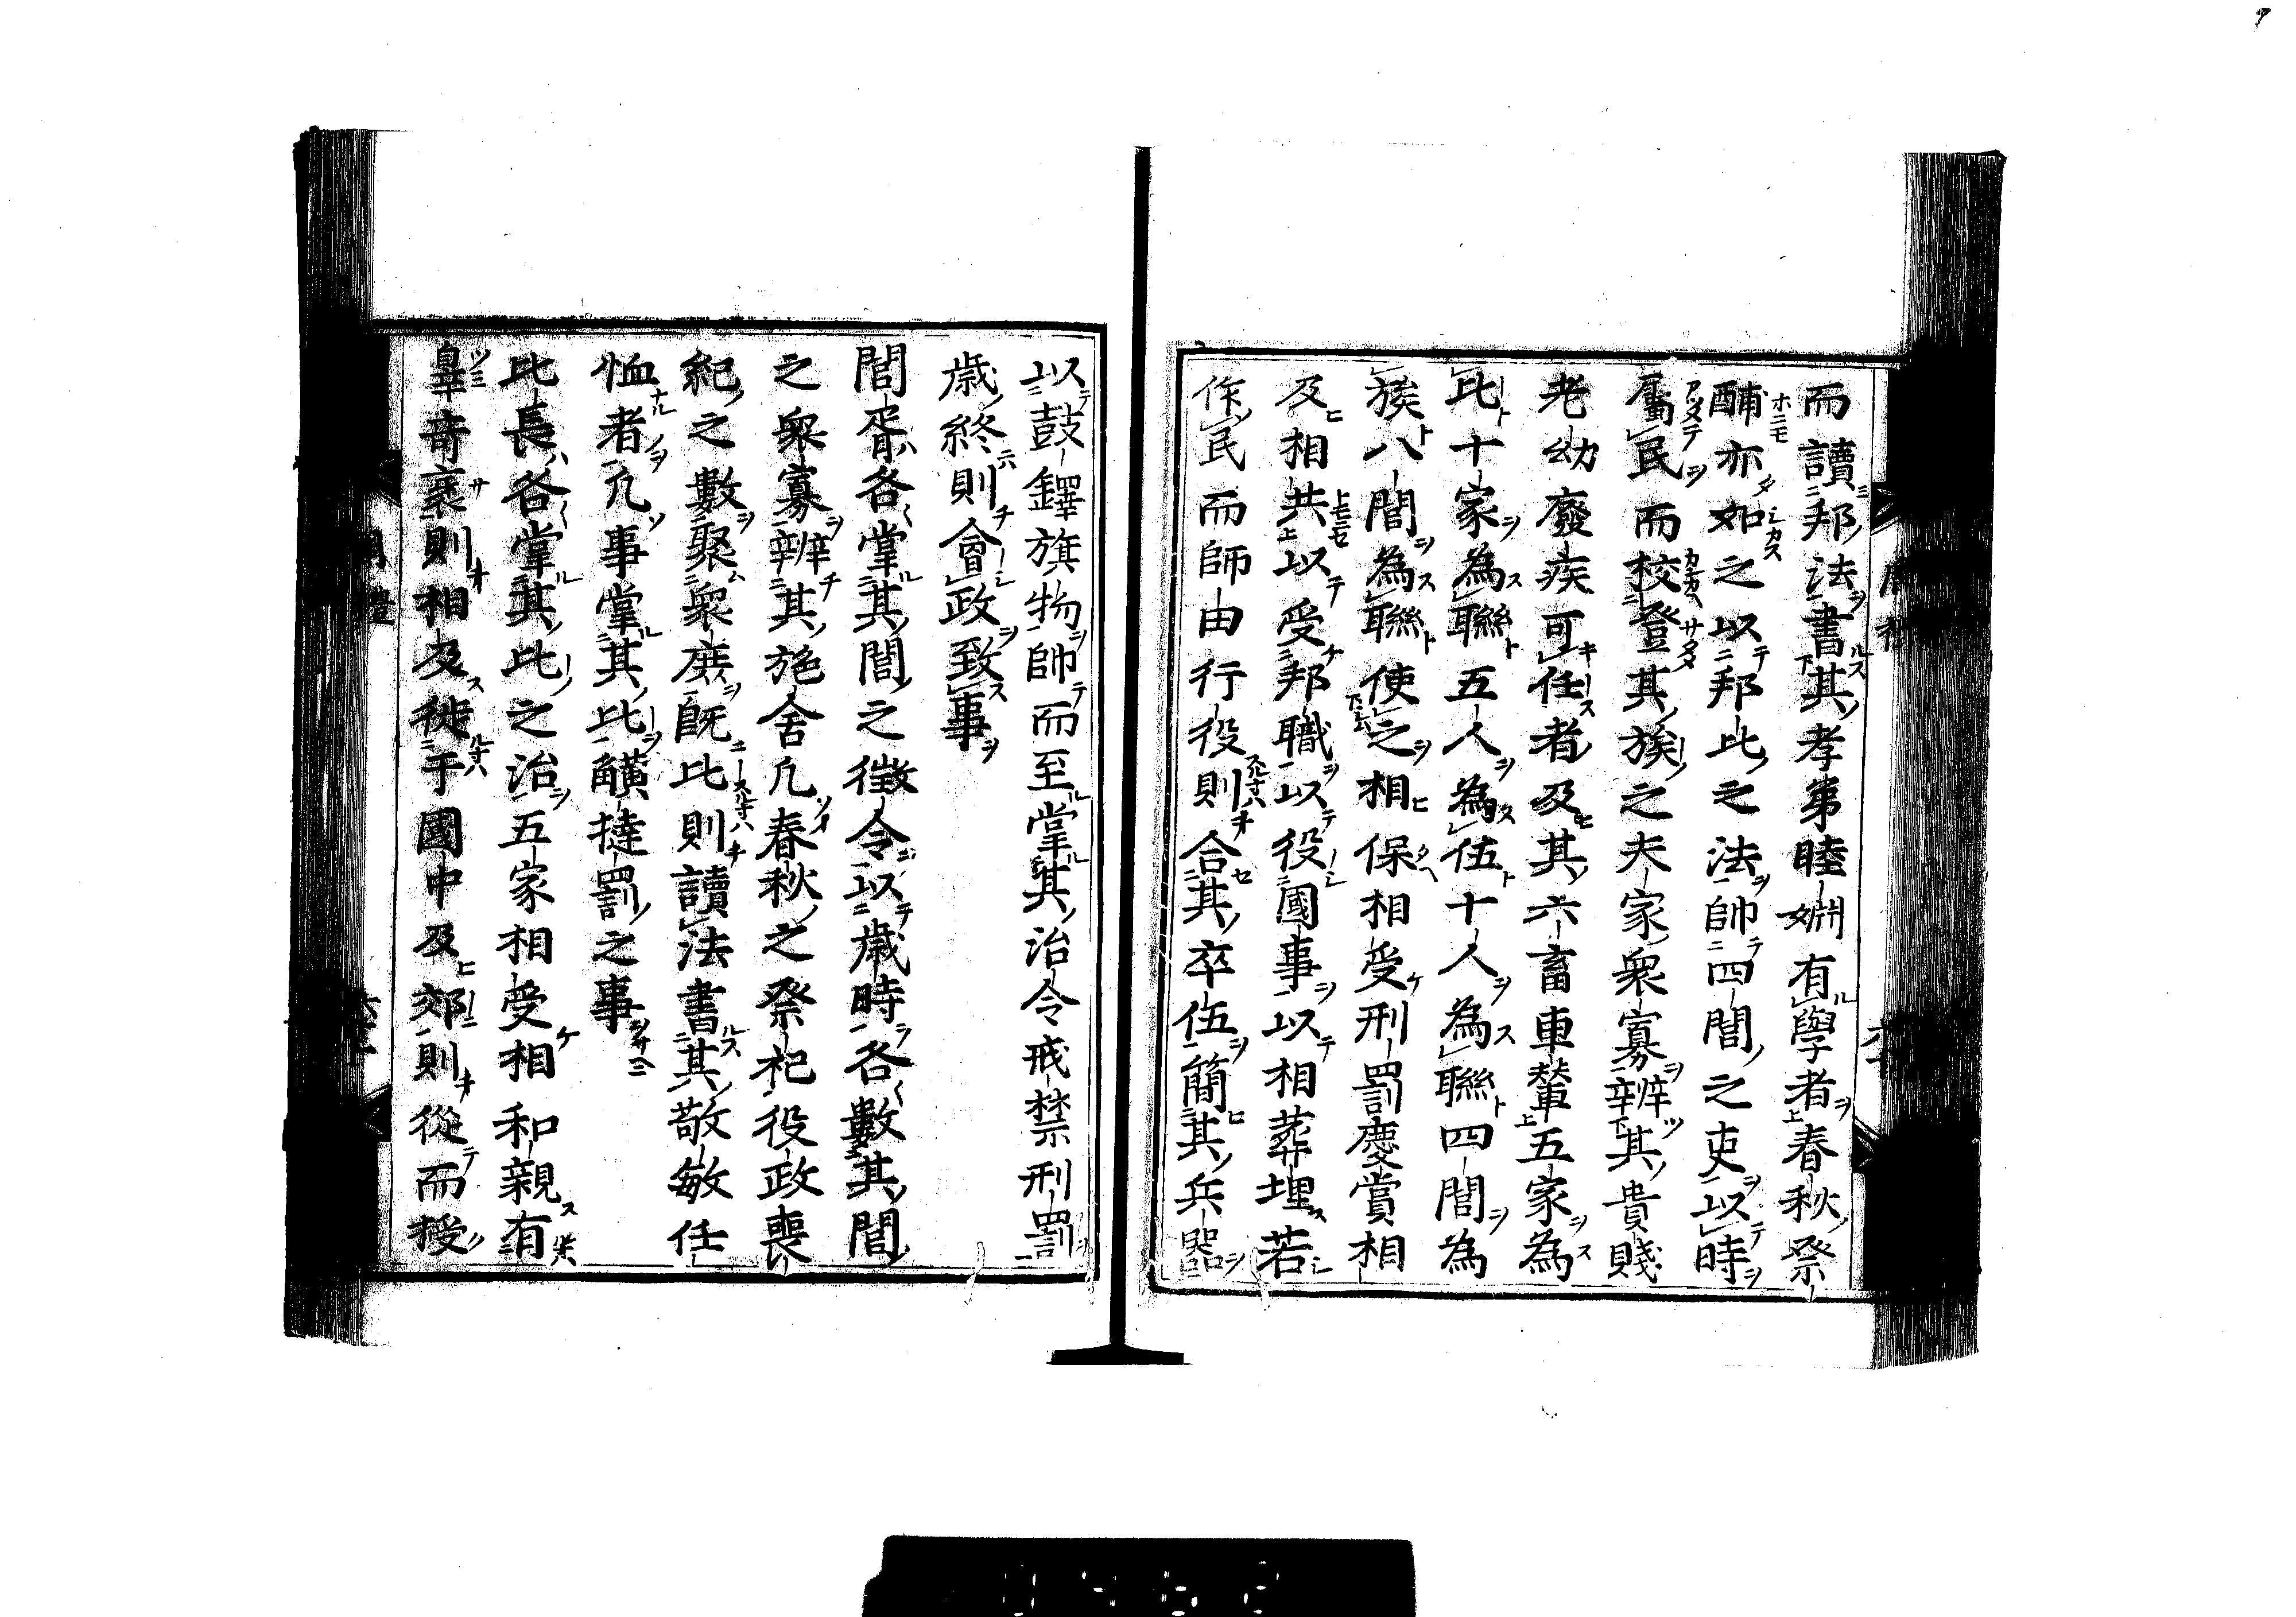 而讀邦法書其孝弟睦婣有學者春秋祭
酺亦如之以邦比之法帥四閭之吏以時
屬民而校登其族之夫家衆寡辨其貴賤
老幼廢疾可任者及其六畜車輦五家為
比十家為聯五人為伍十人為聯四閭為
族八閭為聯使之相保相受刑罰慶賞相
及相共以受邦職以役國事以相葬埋若
作民而師由行役則合其卒伍簡其兵器
以鼓鐸旗物帥而至掌其治令戒禁刑罰
歲終則會政致事
閭胥各掌其閭之徵令以歲時各數其閭
之衆寡辨其施舍凡春秋之祭祀役政喪
紀之數聚衆庶既比則讀法書其敬敏任
恤者凡事掌其比觵撻罰之事
比長各掌其比之治五家相受相和親有
辠竒衺則相及徙于國中及郊則從而授